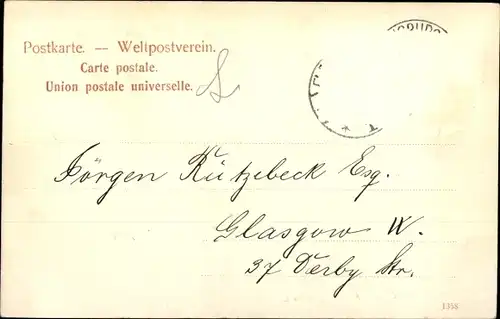 Postkarte. — Weltpostverein.
Carte postale.
Union postale universelle.
Jörgen Rützebeck Esq.
Glasgow W.
37 Derby Str.
1358